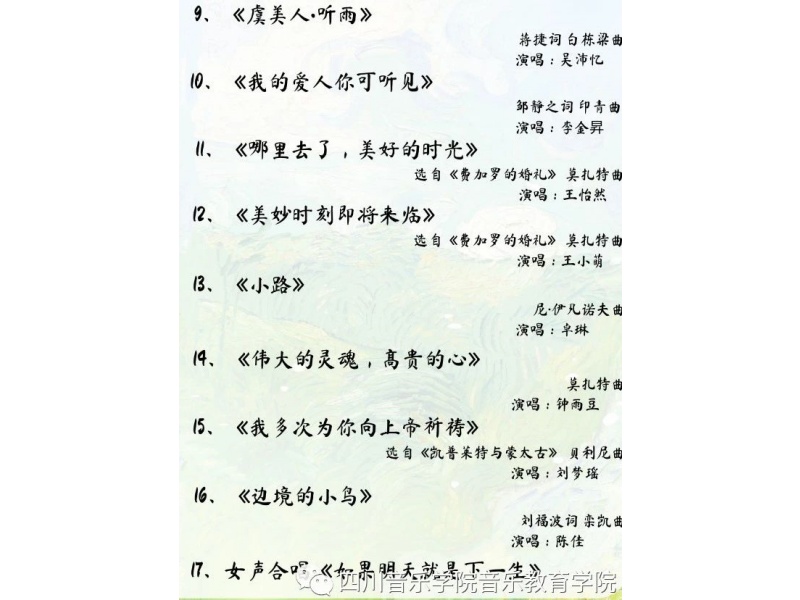 9、《虞美人·听雨》
蒋捷词 白栋梁曲
演唱：吴沛忆
10、《我的爱人你可听见》
邹静之词 印青曲
演唱：李金昇
11、《哪里去了，美好的时光》
选自《费加罗的婚礼》 莫扎特曲
演唱：王怡然
12、《美妙时刻即将来临》
选自《费加罗的婚礼》 莫扎特曲
演唱：王小萌
13、《小路》
尼·伊凡诺夫曲
演唱：卓琳
14、《伟大的灵魂，高贵的心》
莫扎特曲
演唱：钟雨豆
15、《我多次为你向上帝祈祷》
选自《凯普莱特与蒙太古》 贝利尼曲
演唱：刘梦瑶
16、《边境的小鸟》
刘福波词 栾凯曲
演唱：陈佳
17、女声合唱《如果明天就是下一生》
四川音乐学院音乐教育学院